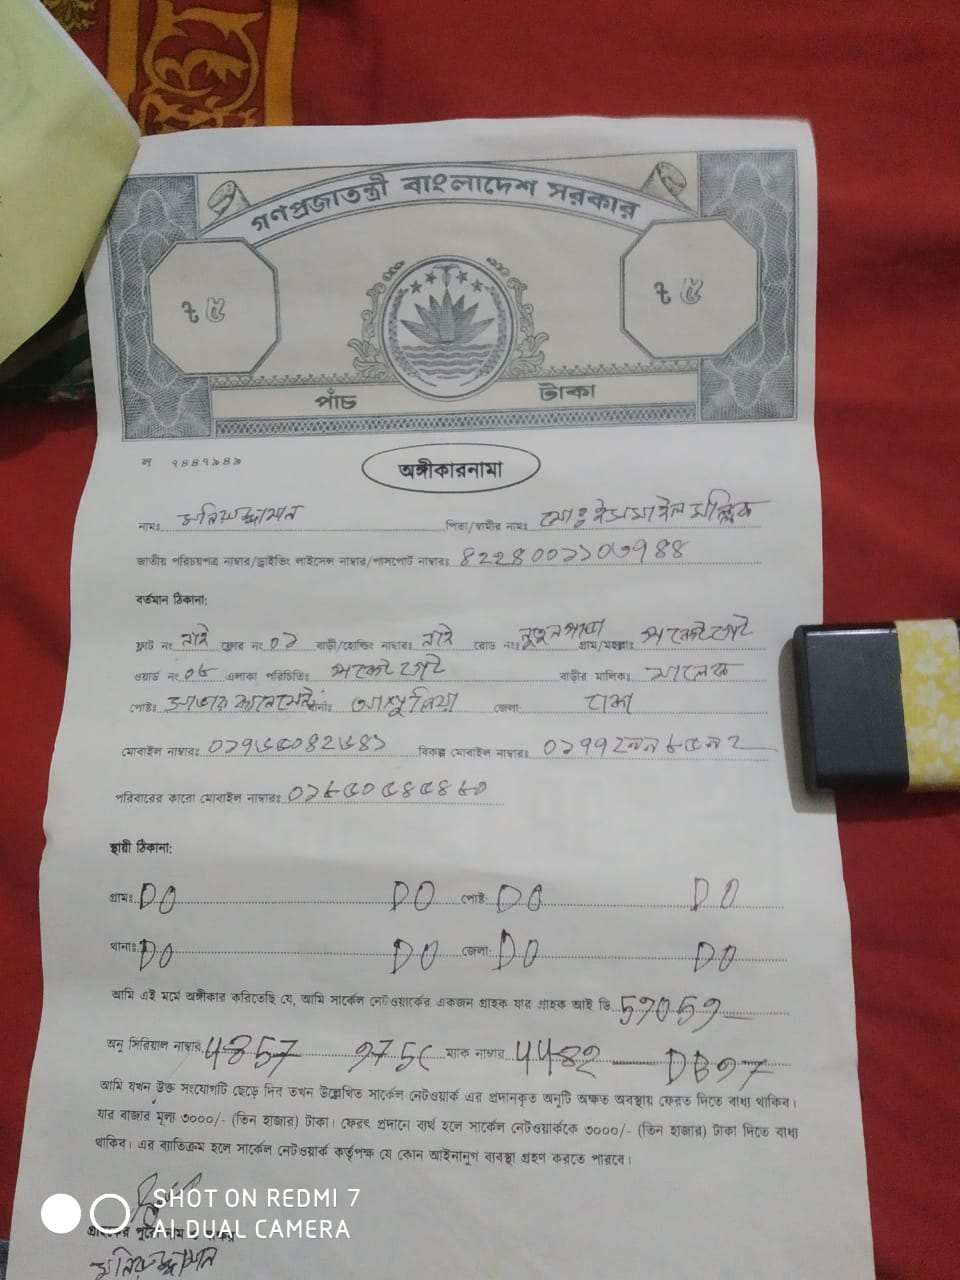 গণপ্রজাতন্ত্রী বাংলাদেশ সরকার
৳ ৫ ৳ ৫
পাঁচ টাকা
অঙ্গীকারনামা
নামঃ মনিরুজ্জামান পিতা/স্বামীর নামঃ মোঃ ইসমাইল মল্লিক
জাতীয় পরিচয়পত্র নাম্বার/ড্রাইভিং লাইসেন্স নাম্বার/পাসপোর্ট নাম্বারঃ
বর্তমান ঠিকানা:
ফ্লাট নং নাই ফ্লোর নং ০১ বাড়ী/হোল্ডিং নাম্বারঃ নাই রোড নংঃ নতুনপাড়া গ্রাম/মহল্লাঃ
ওয়ার্ড নং ০৮ এলাকা পরিচিতিঃ বাড়ীর মালিকঃ মালেক
পোষ্টঃ থানাঃ আশুলিয়া জেলাঃ ঢাকা
মোবাইল নাম্বারঃ বিকল্প মোবাইল নাম্বারঃ
পরিবারের কারো মোবাইল নাম্বারঃ
স্থায়ী ঠিকানা:
গ্রামঃ DO DO পোষ্ট: DO DO
থানাঃ DO DO জেলা: DO DO
আমি এই মর্মে অঙ্গীকার করিতেছি যে, আমি সার্কেল নেটওয়ার্কের একজন গ্রাহক যার গ্রাহক আই ডি
অনু সিরিয়াল নাম্বার ম্যাক নাম্বার
আমি যখন উক্ত সংযোগটি ছেড়ে দিব তখন উল্লেখিত সার্কেল নেটওয়ার্ক এর প্রদানকৃত অনুটি অক্ষত অবস্থায় ফেরত দিতে বাধ্য থাকিব।
যার বাজার মূল্য ৩০০০/- (তিন হাজার) টাকা। ফেরৎ প্রদানে ব্যর্থ হলে সার্কেল নেটওয়ার্ককে ৩০০০/- (তিন হাজার) টাকা দিতে বাধ্য
থাকিব। এর ব্যতিক্রম হলে সার্কেল নেটওয়ার্ক কর্তৃপক্ষ যে কোন আইনানুগ ব্যবস্থা গ্রহণ করতে পারবে।
SHOT ON REDMI 7
AI DUAL CAMERA
মনিরুজ্জামান